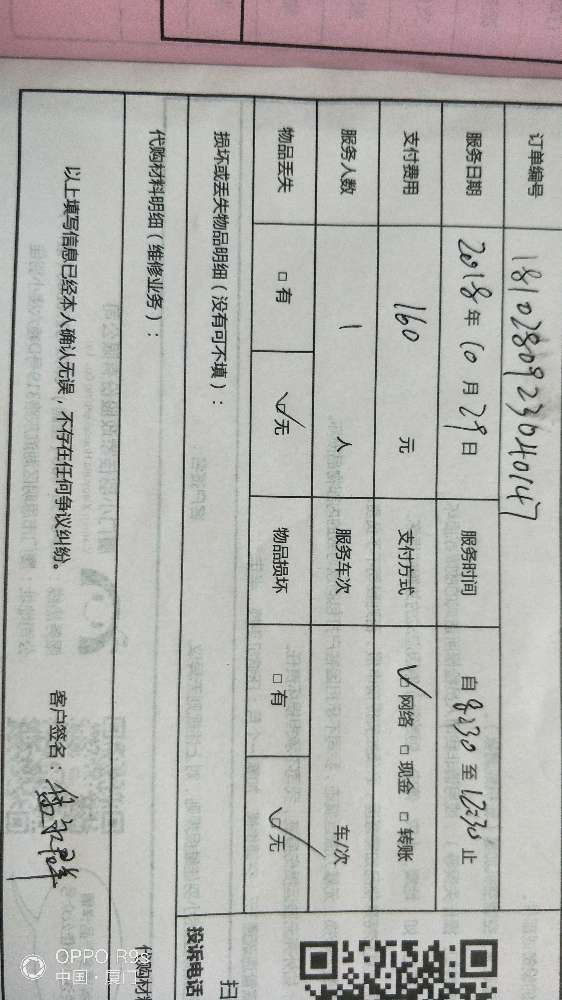 订单编号 1810280923040147
服务日期 2018年10月29日 服务时间 自8:30至12:30止
支付费用 160 元 支付方式 ☑网络 □现金 □转账
服务人数 1 人 服务车次 车/次
物品丢失 □有 ☑无 物品损坏 □有 ☑无
损坏或丢失物品明细（没有可不填）：
代购材料明细（维修业务）：
以上填写信息已经本人确认无误，不存在任何争议纠纷。
客户签名：
扫
投诉电话
代购材料
OPPO R9s
中国·厦门